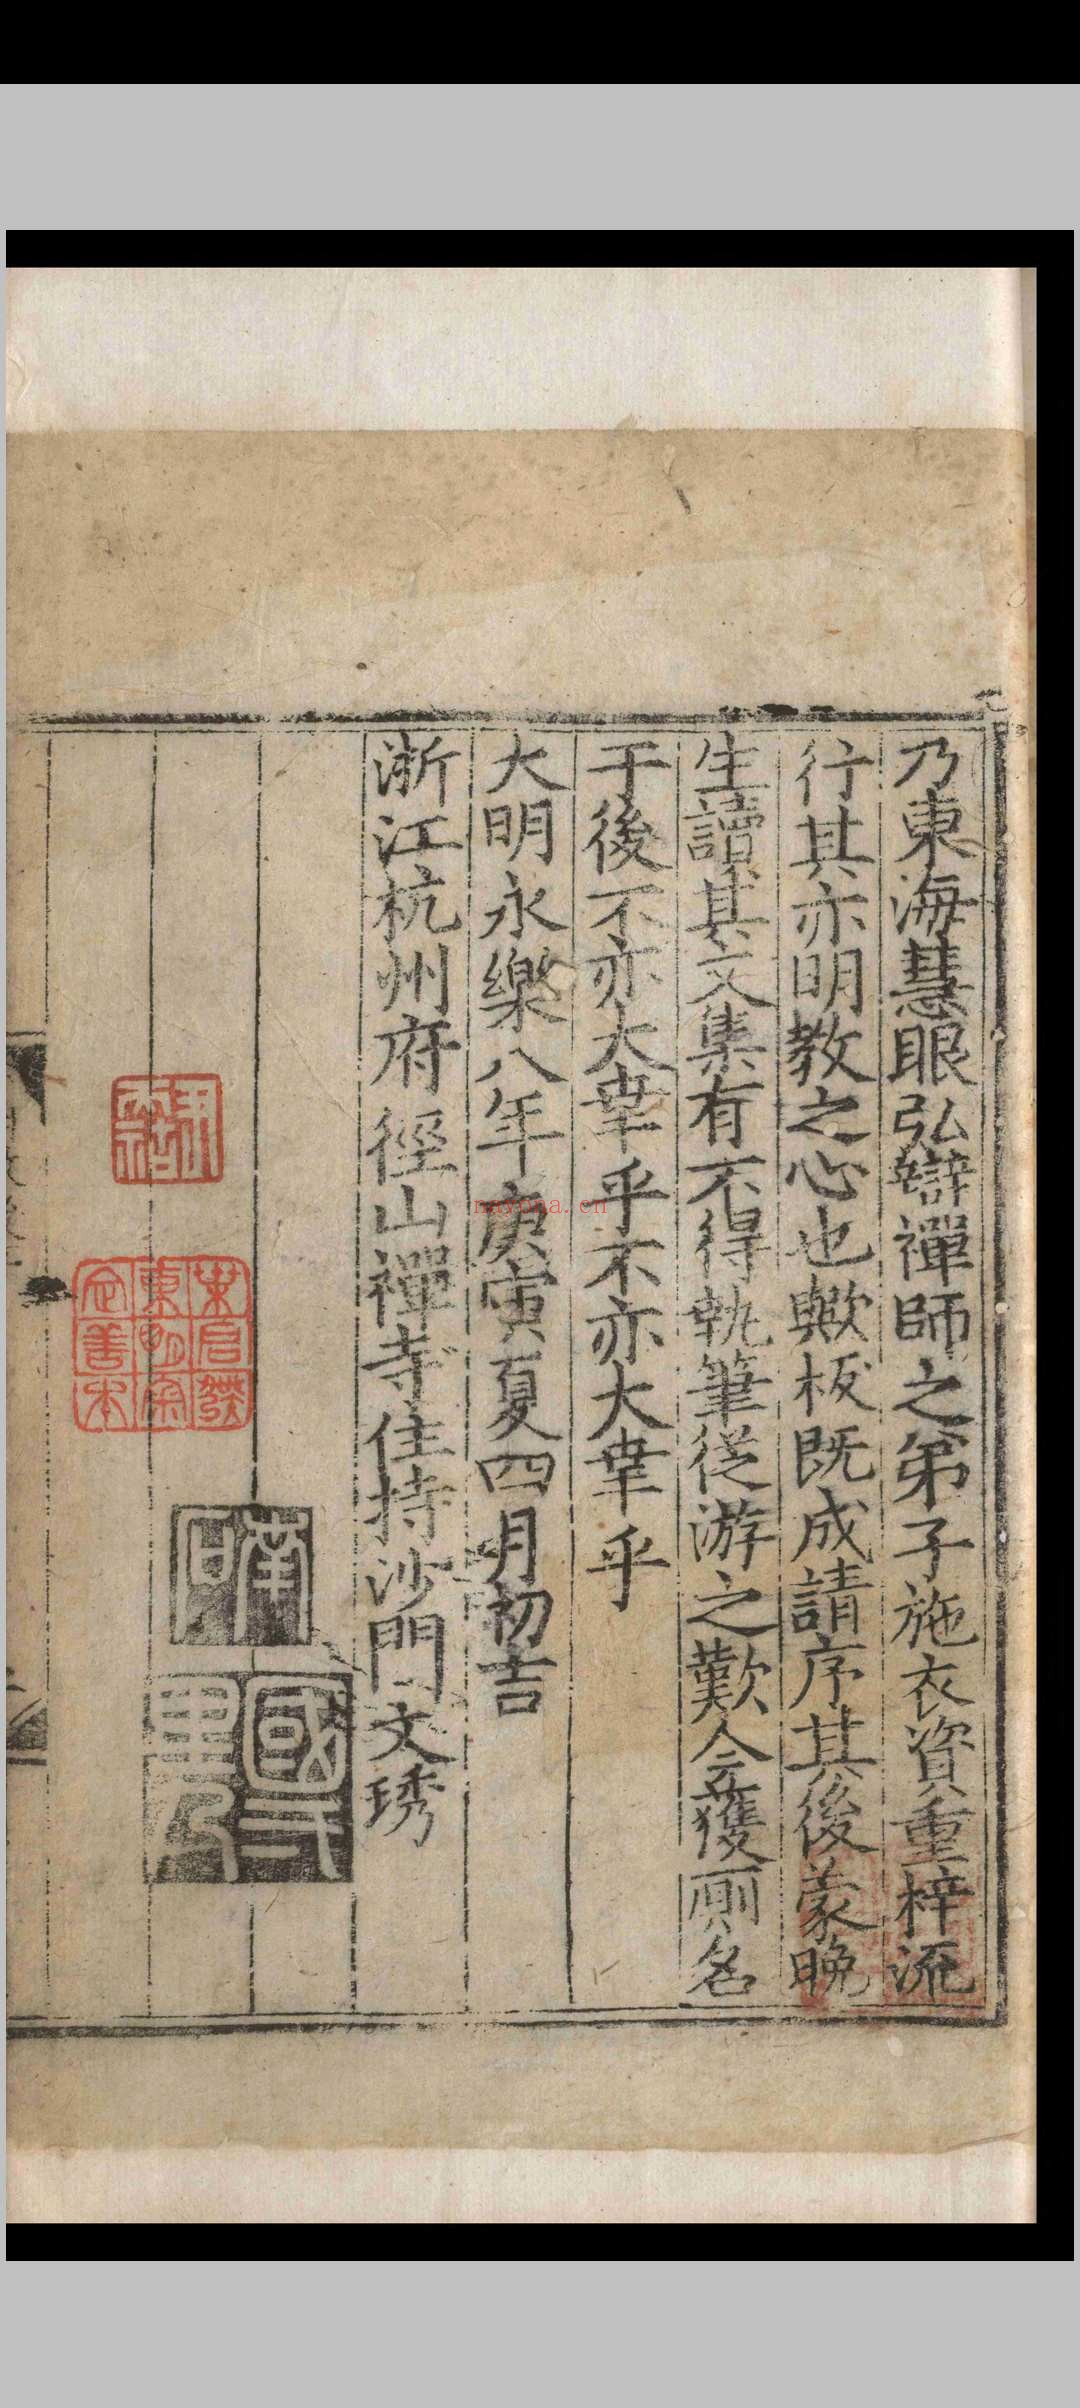 乃東海慧眼弘辯禪師之弟子施衣資重梓流
行其亦明教之心也歟板既成請序其後蒙晚
生讀其文集有不得執筆從游之歎今獲厠名
于後不亦大幸乎不亦大幸乎
大明永樂八年庚寅夏四月初吉
浙江杭州府徑山禪寺住持沙門文琇
葉啓發
東明審
定善本
navona.cn